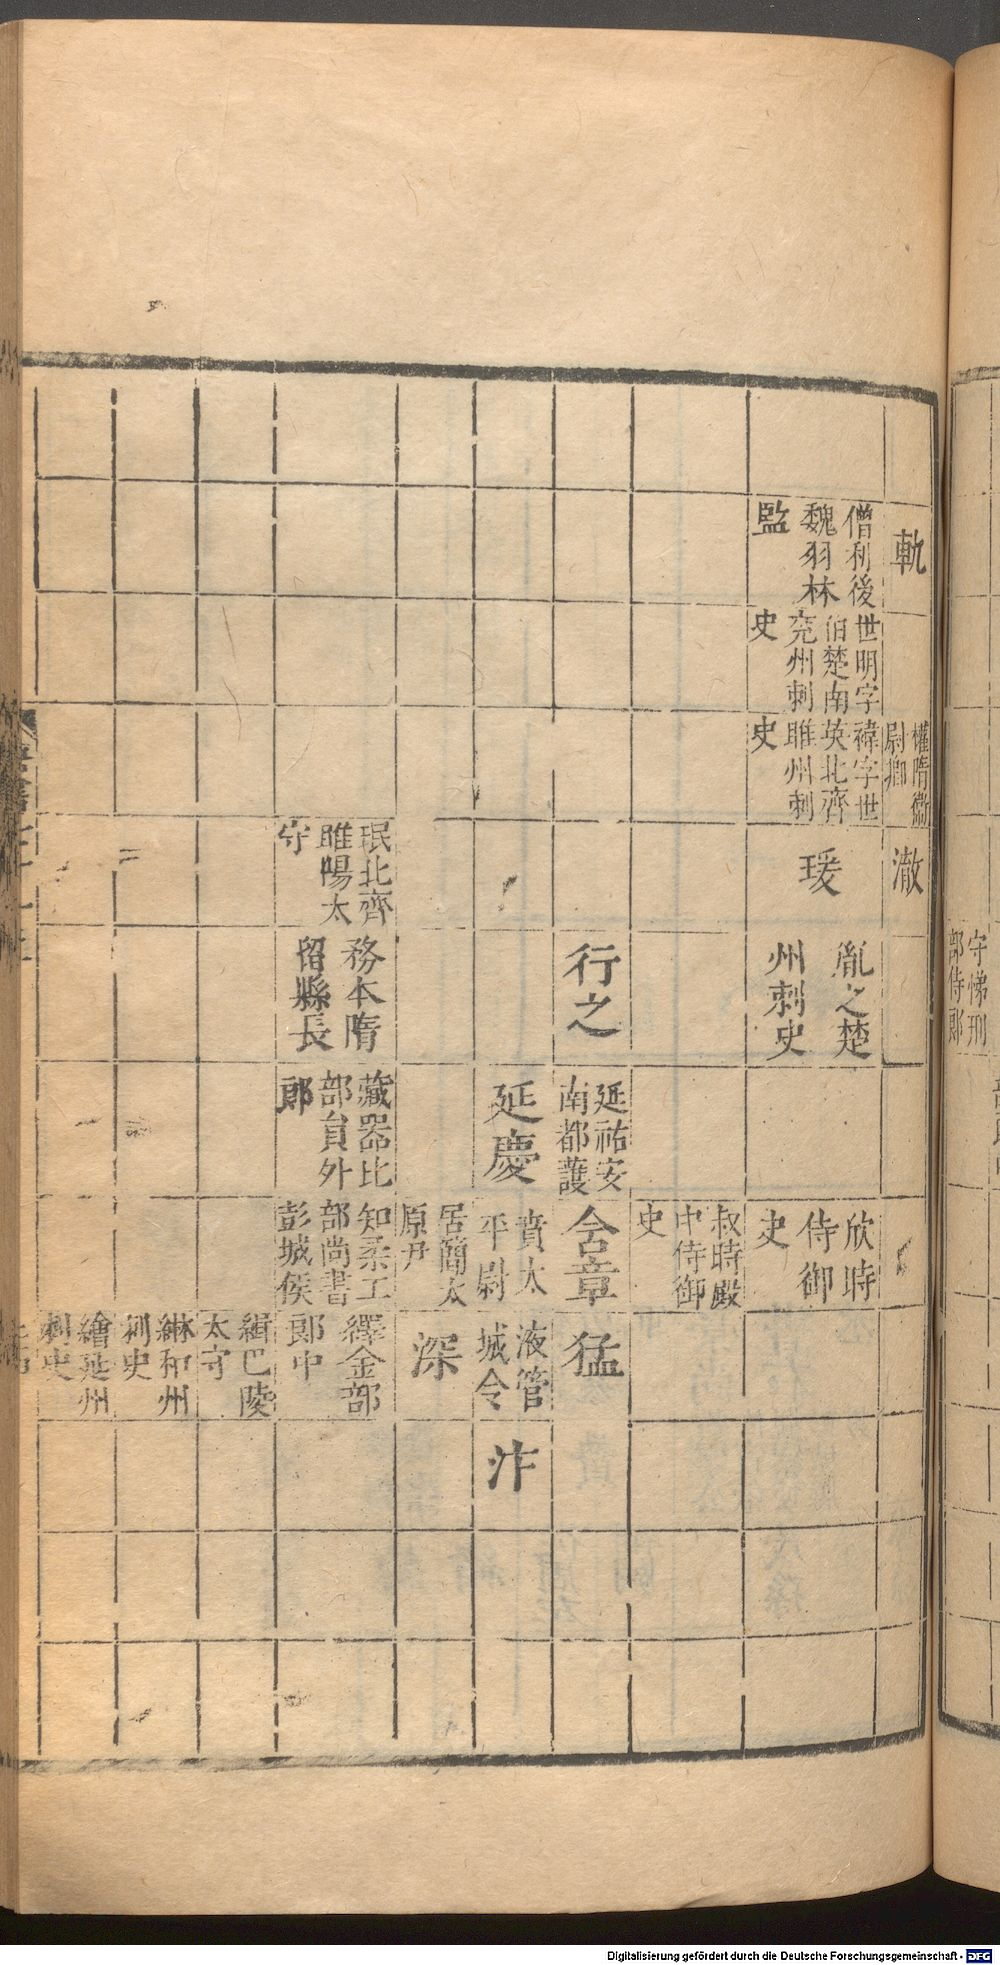 軌
權隋衞
尉卿
澈
僧利後
魏羽林
監
世明字
伯楚南
兗州刺
史
褘字世
英北齊
睢州刺
史
瑗
胤之楚
州刺史
欣時
侍御
史
叔時殿
中侍御
史
行之
延祐安
南都護
含章
猛
延慶
賁太
平尉
液管
城令
汴
居簡太
原尹
深
珉北齊
睢陽太
守
務本隋
留縣長
藏器比
部員外
郎
知柔工
部尚書
彭城侯
繹金部
郎中
緝巴陵
太守
綝和州
刺史
繪延州
刺史
守悌刑
部侍郎
Digitalisierung gefördert durch die Deutsche Forschungsgemeinschaft - DFG